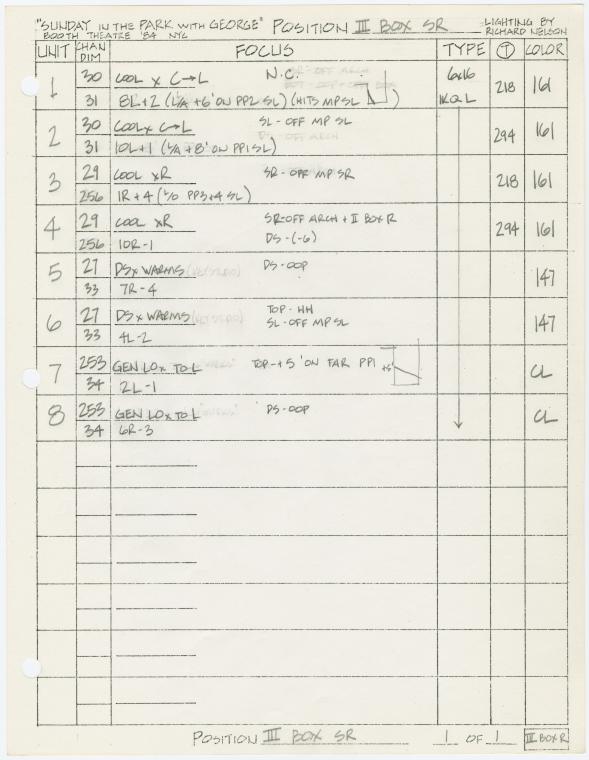 "SUNDAY IN THE PARK WITH GEORGE" POSITION III BOX SR LIGHTING BY
BOOTH THEATRE '84 NYC RICHARD NELSON
UNIT CHAN DIM FOCUS TYPE T COLOR
1 30 COOL X C→L N.C. 6x16 218 161
31 8L+2 (L/A +6' ON PP2 SL) (HITS MP SL) 1KQL
2 30 COOL X C→L SL - OFF MP SL 294 161
31 10L+1 (L/A +8' ON PP1 SL)
3 29 COOL XR SR - OFF MP SR 218 161
256 1R+4 (L/O PP3+4 SL)
4 29 COOL XR SR-OFF ARCH + II BOX R 294 161
256 10R-1 DS-(-6)
5 27 DSX WARMS DS-OOP 147
33 7R-4
6 27 DSX WARMS TOP-HH 147
33 4L-2 SL-OFF MP SL
7 253 GEN LOX TO L TOP-+5' ON FAR PP1 +5' CL
34 2L-1
8 253 GEN LOX TO L DS-OOP CL
34 6R-3
POSITION III BOX SR 1 OF 1 III BOX R